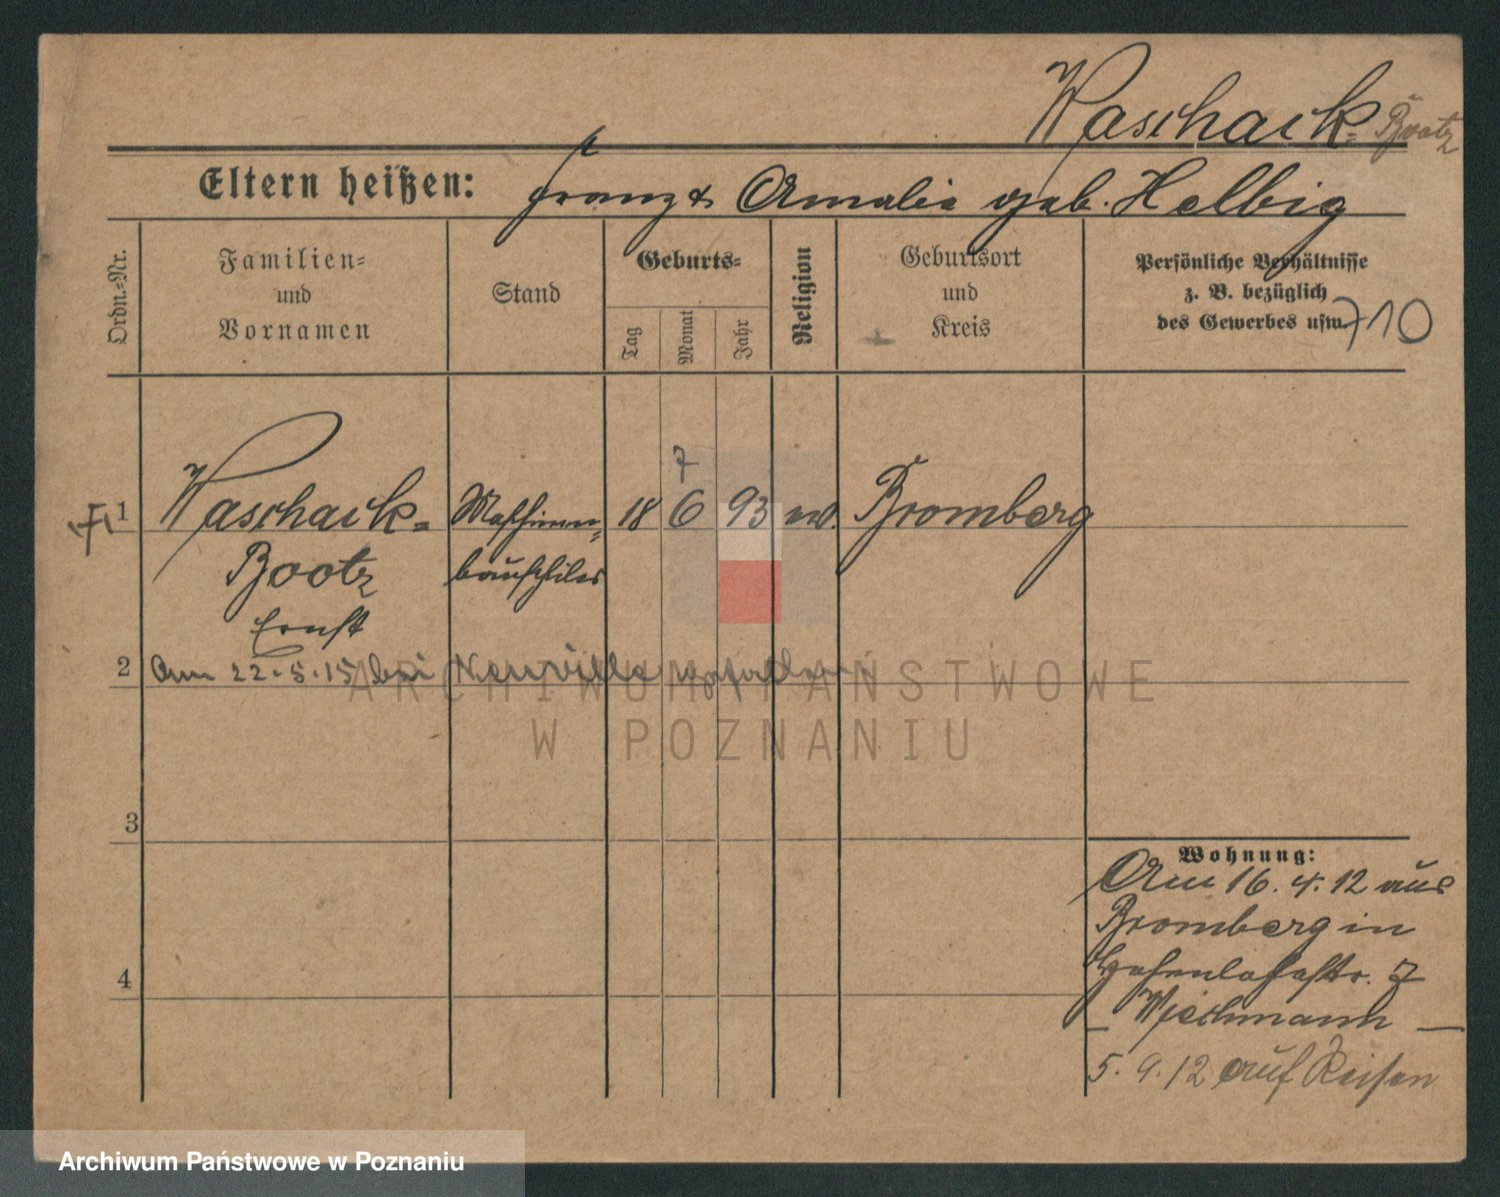 Waschack= Bootz
Eltern heißen: Franz & Amalie geb. Helbig
Ordn.=Nr.
Familien=
und
Vornamen
Stand
Geburts=
Tag
Monat
Jahr
Religion
Geburtsort
und
Kreis
Persönliche Verhältnisse
z. B. bezüglich
des Gewerbes usw.
710
7
1 Waschack= Maschinen= 18 6 93 ev. Bromberg
Bootz bauschüler
Ernst
2 Am 22.5.15 bei Neuville gefallen
3
4
Wohnung:
Am 16.4.12 aus
Bromberg in
Hohenlohestr. 7
– Wichmann –
5.9.12 auf Reisen
ARCHIWUM PAŃSTWOWE
W POZNANIU
Archiwum Państwowe w Poznaniu